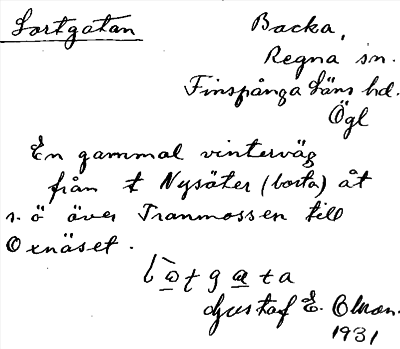 Lortgatan
Backa,
Regna sn.
Finspånga läns hd.
Ögl
En gammal vinterväg
från t Nysäter (borta) åt
s. ö över Tranmossen till
Oxnäset.
Gustaf E. Olson.
1931